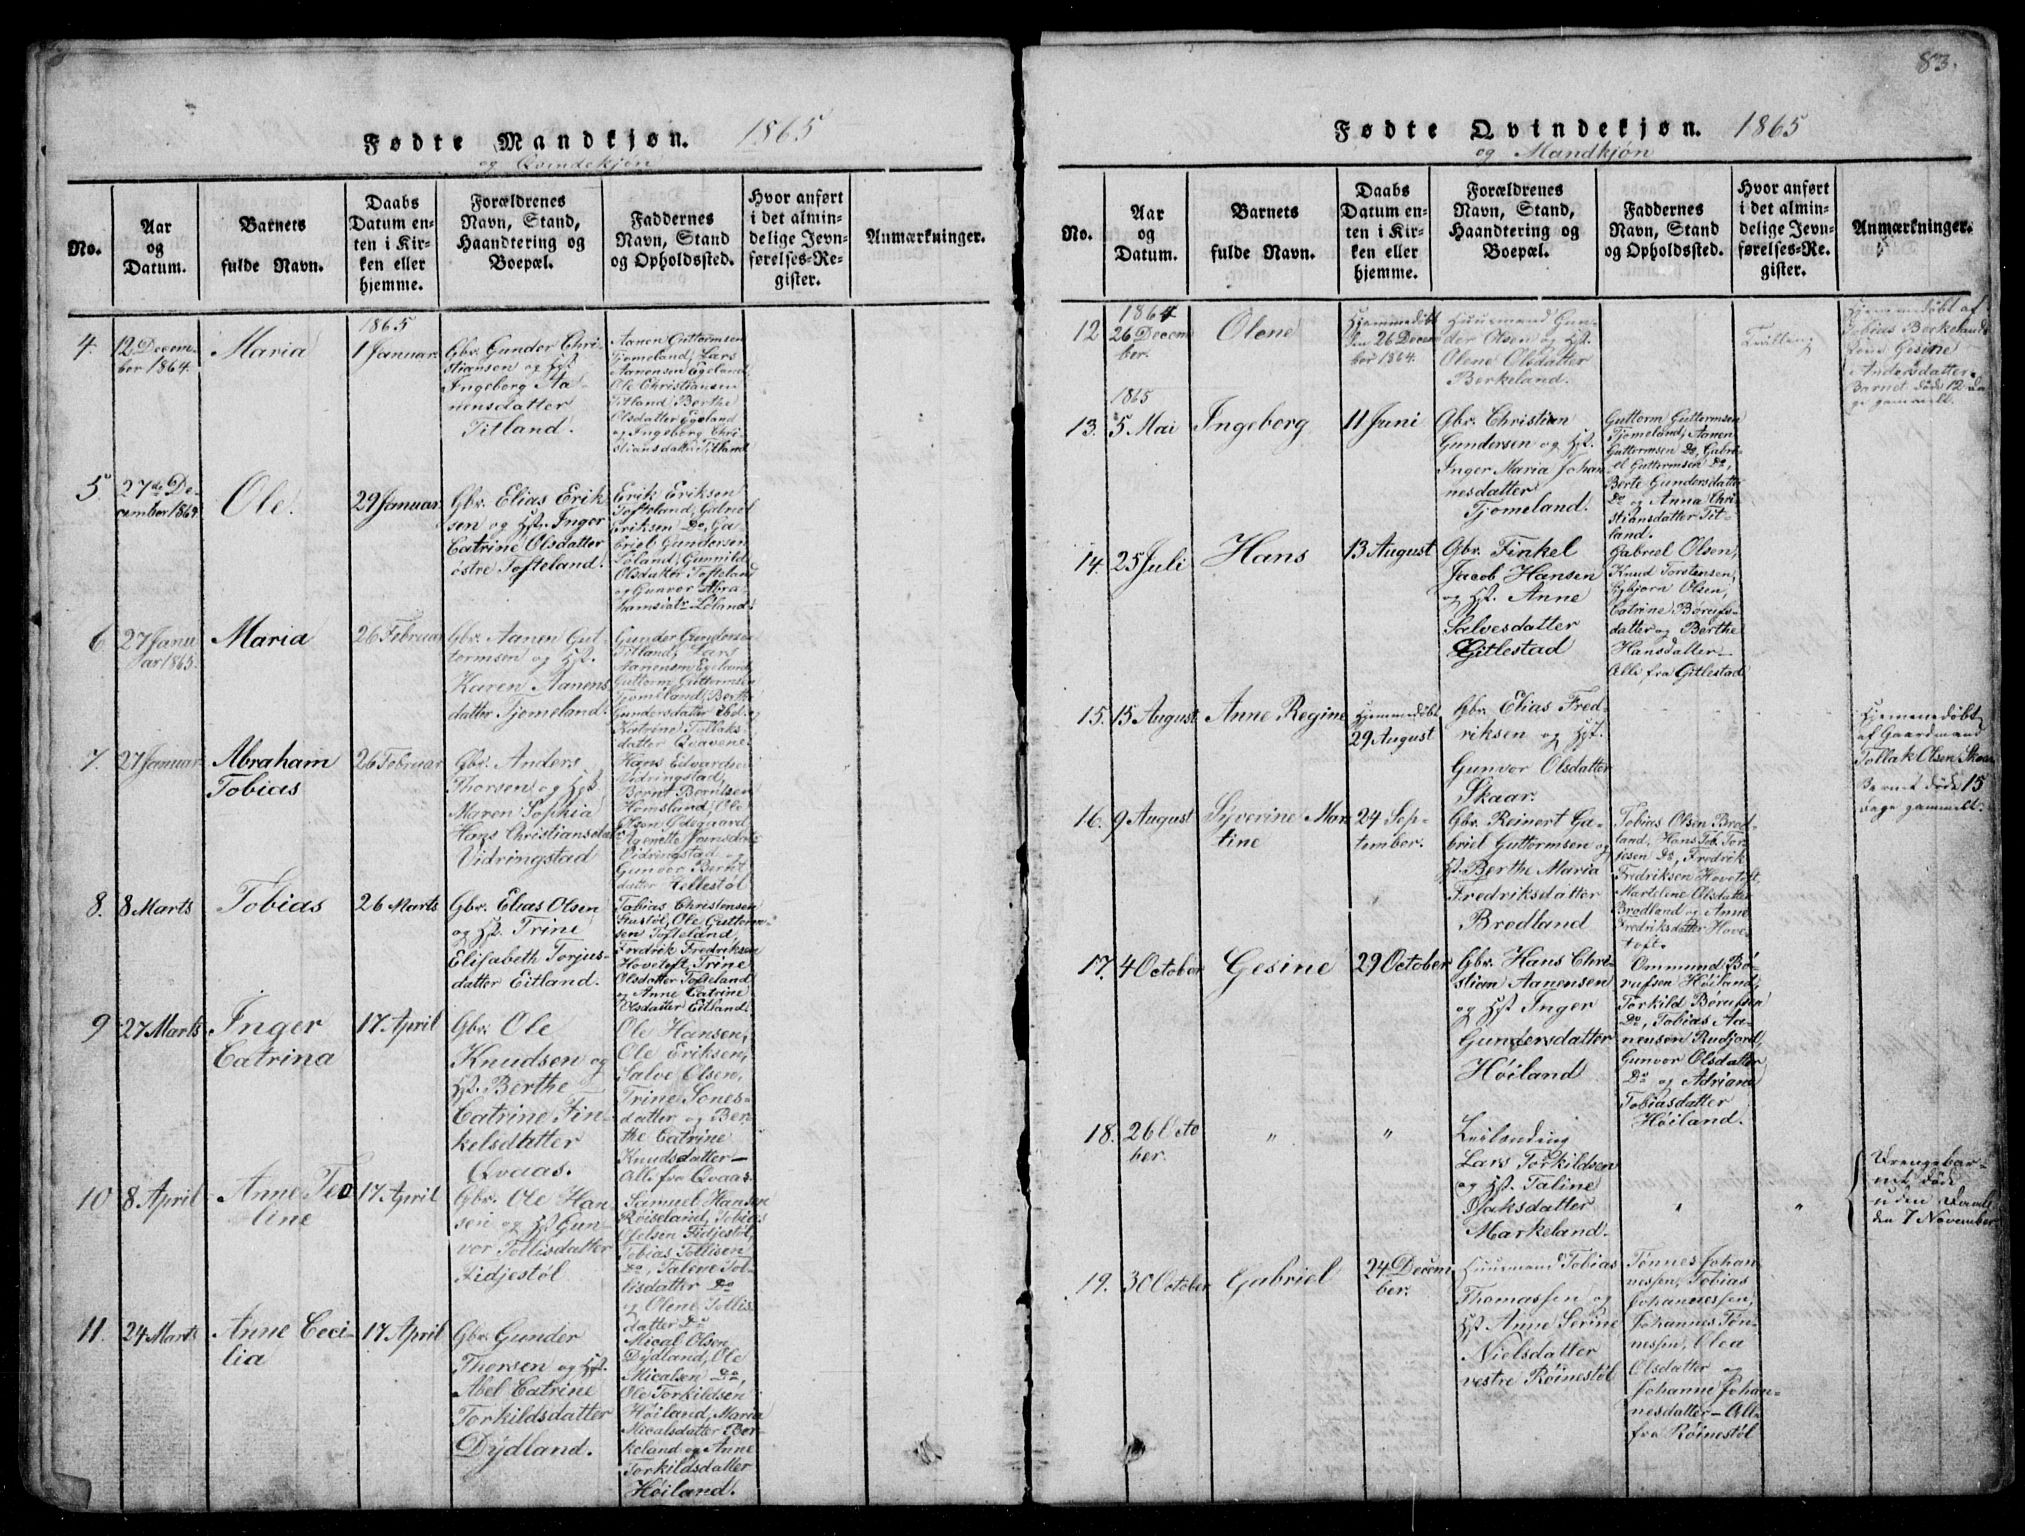 Fødte Mandkjøn. 1865
og Qvindekjøn
No.
Aar
og
Datum.
Barnets
fulde Navn.
Daabs
Datum en-
ten i Kir-
ken eller
hjemme.
Forældrenes
Navn, Stand,
Haandtering og
Boepæl.
Faddernes
Navn, Stand
og Opholdssted.
Hvor anført
i det almin-
delige Jevn-
førelses-Re-
gister.
Anmærkninger.
4.
12 Decem-
ber 1864.
Maria
1865
1 Januar.
Gbr. Gunder Chri-
stiansen og Hst.
Ingeborg Aa-
nensdatter
Titland.
Aanen Guttormsen
Tjomeland, Lars
Aanensen Egeland,
Ole Christiansen
Titland, Berthe
Olsdatter Egeland
og Ingeborg Chri-
stiansdatter Titland
5.
27de De-
cember 1864
Ole.
29 Januar.
Gbr. Elias Erik
sen og Hst. Inger
Catrine Olsdatter
østre Tofteland.
Erik Eriksen
Tofteland, Gabriel
Eriksen Do, Ga-
briel Gundersen
Loland, Gunnild
Olsdatter Tofteland
og Gunvor Abra-
hamsdatr Loland.
6.
27 Janu
ar 1865.
Maria
26 Februar
Gbr. Aanen Gut-
tormsen og Hst.
Karen Aanens
datter Tjomeland.
Gunder Gundersen
Titland, Lars
Aanensen Egeland,
Guttorm Guttormsen
Tjomeland, Berthe
Gundersdatter Ibd. og
Katrine Tollaks-
datter Qvavene
7.
27 Januar.
Abraham
Tobias
26 Februar
Gbr. Anders
Thorsen og Hst
Maren Sophia
Hans Christiansdatr
Vidringstad
Hans Edvardsen
Vidringstad,
Bernt Berntsen
Homsland, Ole
Olsen Ødegaard,
Vidringstad og
Gunvor Bernt
datter Hellestøl
8.
8 Marts
Tobias
26 Marts
Gbr. Elias Olsen
og Hst. Trine
Elisabeth Torjus-
datter Eitland.
Tobias Christensen
Stustøl, Ole Guttorm-
sen Tofteland,
Fredrik Fredriksen
Hovetoft, Trine
Olsdatter Tofteland
og Anne Catrine
Olsdatter Eitland.
9
27 Marts
Inger
Catrina
17 April
Gbr. Ole
Knudsen og
Hst. Berthe
Catrine Fin-
kelsdatter
Qvaas.
Ole Hansen,
Ole Eriksen,
Salve Olsen,
Trine Sones-
datter og Ber-
the Catrine
Knudsdatter—
Alle fra Qvaas.
10
8 April
Anne Teo
line
17 April
Gbr. Ole Han-
sen og Hst Gun-
vor Tollisdatter
Fidjestøl
Samuel Hansen
Røiseland, Tobias
Olelsen Fidjestøl,
Tobias Tollisen
Do, Talene Tol-
lisdatter Do
og Olene Tollis-
datter Do
11.
24 Marts
Anne Ceci-
lia
17 April
Gbr. Gunder
Thorsen og Hst.
Abel Catrine
Torkildsdatter
Dydland.
Mical Olsen
Dydland, Ole
Micalsen Do,
Ole Torkildsen
Høiland, Maria
Micalsdatter Ber-
keland og Anne
Torkildsdatter
Høiland.
83.
Fødte Qvindekjøn. 1865
og Mandkjøn
No.
Aar
og
Datum.
Barnets
fulde Navn.
Daabs
Datum en-
ten i Kir-
ken eller
hjemme.
Forældrenes
Navn, Stand,
Haandtering og
Boepæl.
Faddernes
Navn, Stand
og Opholdssted.
Hvor anført
i det almin-
delige Jevn-
førelses-Re-
gister.
Anmærkninger.
12
1864
26 Decem
ber.
Olene
Hjemmedøbt
den 26 Decem
ber 1864.
Huusmand Gun-
der Olsen og Hst.
Olene Olsdatter
Berkeland.
Tvilling
Hjemmedøbt af
Tobias Berkelands
Kone Gesine
Andersdatter.
Barnet døde 12 da
ge gammelt.
1865
13.
5 Mai
Ingeborg
11 Juni
Gbr. Christian
Gundersen og Hst.
Inger Maria Johan
nesdatter
Tjomeland.
Guttorm Guttormsen
Tjomeland, Aanen
Guttormsen Do, Gabri-
el Guttormsen Do,
Berte Gundersdatter
Do og Anna Chri-
stiansdatter Tit-
land.
14.
25 Juli
Hans
13 August
Gbr. Finkel
Jacob Hansen
og Hst. Anne
Salvesdatter
Gitlestad
Gabriel Olsen,
Knud Torstensen,
Eybjorn Olsen,
Catrine Børufs-
datter og Berthe
Hansdatter—
Alle fra Gitlestad
15.
15 August.
Anne Regine
Hjemmedøbt
29 August
Gbr. Elias Fred
riksen og Hst.
Gunvor Olsdatter
Skaar.
Hjemmedøbt
af Gaardmand
Tollak Olsen Skaar
Barnet døde 15
dage gammelt.
16.
9 August
Syverine Mar
tine
24 Sep-
tember.
Gbr. Reinert Ga-
briel Guttormsen og
Hst. Berthe Maria
Fredriksdatter
Brodland
Tobias Olsen Brod-
land, Hans Tob. Tor-
jesen Do, Fredrik
Fredriksen Hovetoft,
Marteline Olsdatter
Brodland og Anne
Fredriksdatter Hove-
toft.
17.
4 October
Gesine
29 October
Gbr. Hans Chri-
stian Aanensen
og Hst Inger
Gundersdatter
Høiland
Ommund Bø-
rufsen Høiland,
Torkild Børufsen
Do, Tobias Aa-
nensen Rudjord,
Gunvor Olsdatter
Do og Adriane
Tobiasdatter
Høiland.
18.
26 Octo
ber.
"
"
Leilænding
Lars Torkildsen
og Hst. Taline
Isaksdatter
Markeland.
"
"
Drengebar-
net døde
uden Daab
den 7 November
19.
30 October
Gabriel
24 Decem
ber.
Huusmand Tobias
Thomassen og
Hst Anne Serine
Nielsdatter
vestre Røinestøl
Tønnes Johan
nessen, Tobias
Johannessen,
Johannes Tøn-
nessen, Olea
Olsdatter og
Johanne Johan-
nesdatter— Alle
fra Røinestøl